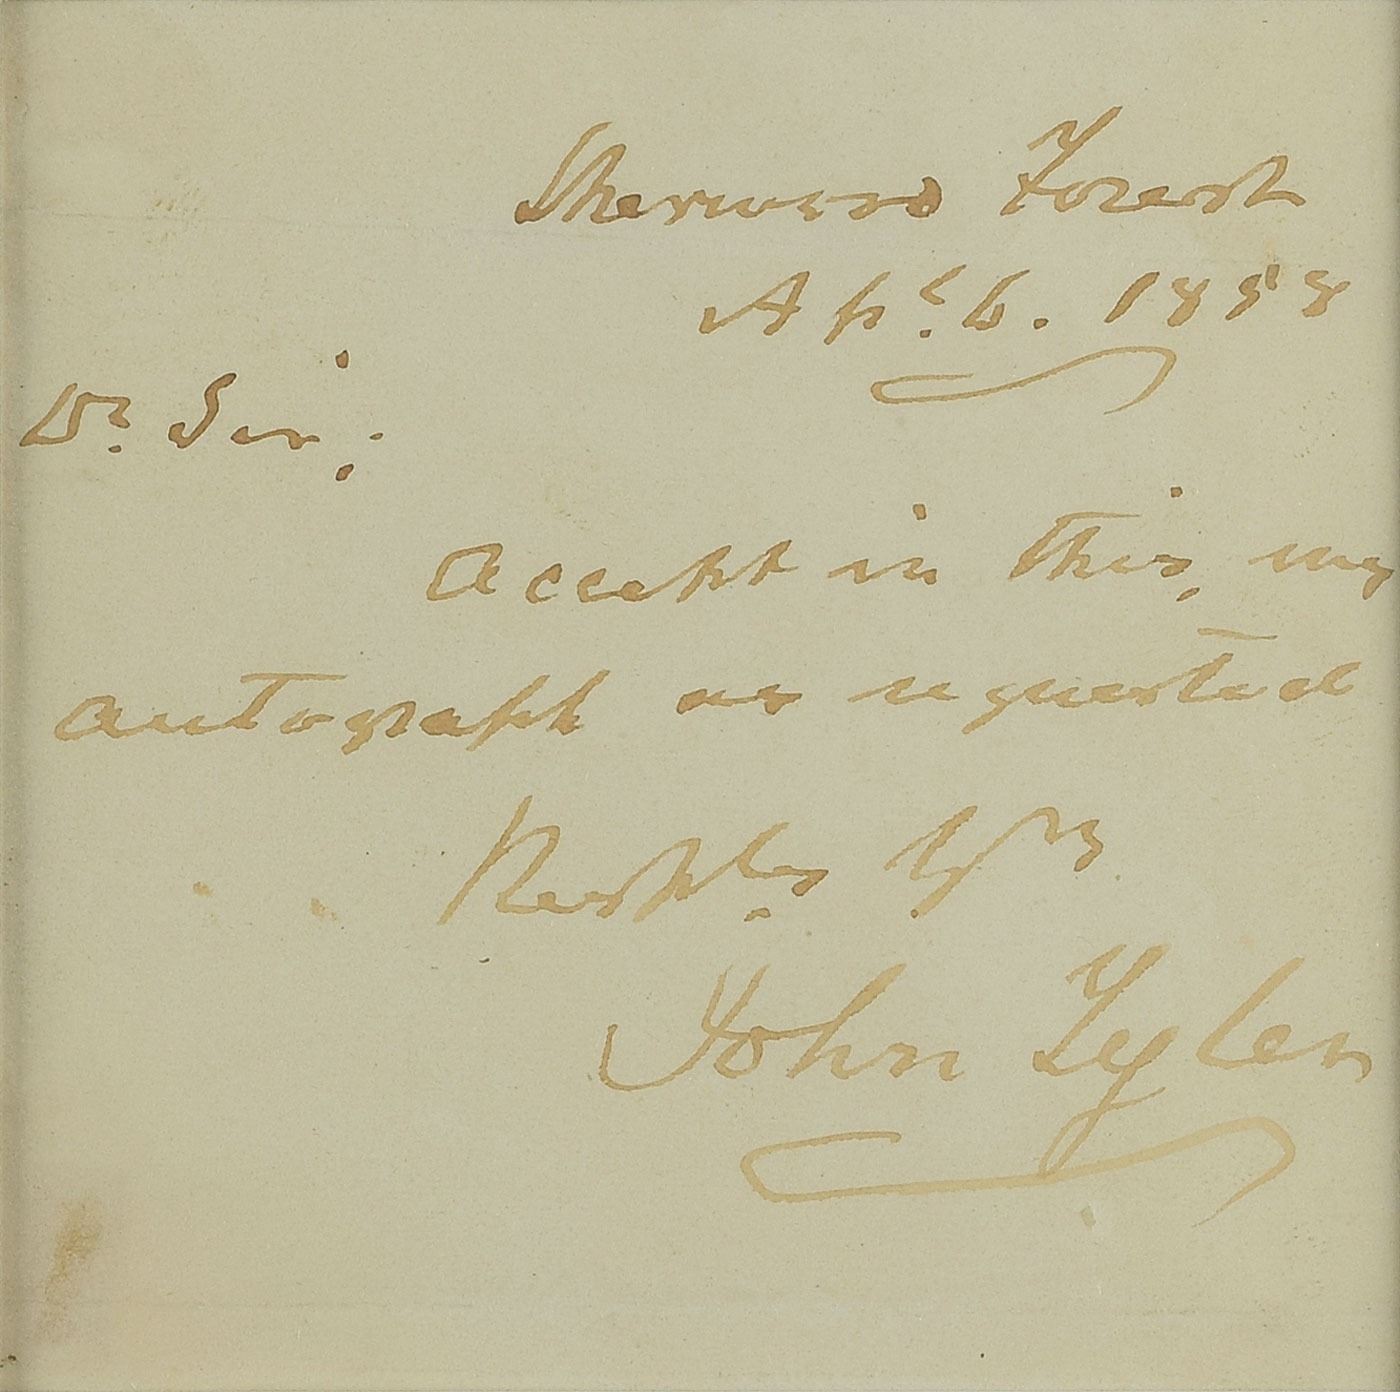 Sherwood Forest
Apl. 6. 1858
Dr. Sir;
Accept in this, my
autograph as requested
Respkly Yrs
John Tyler